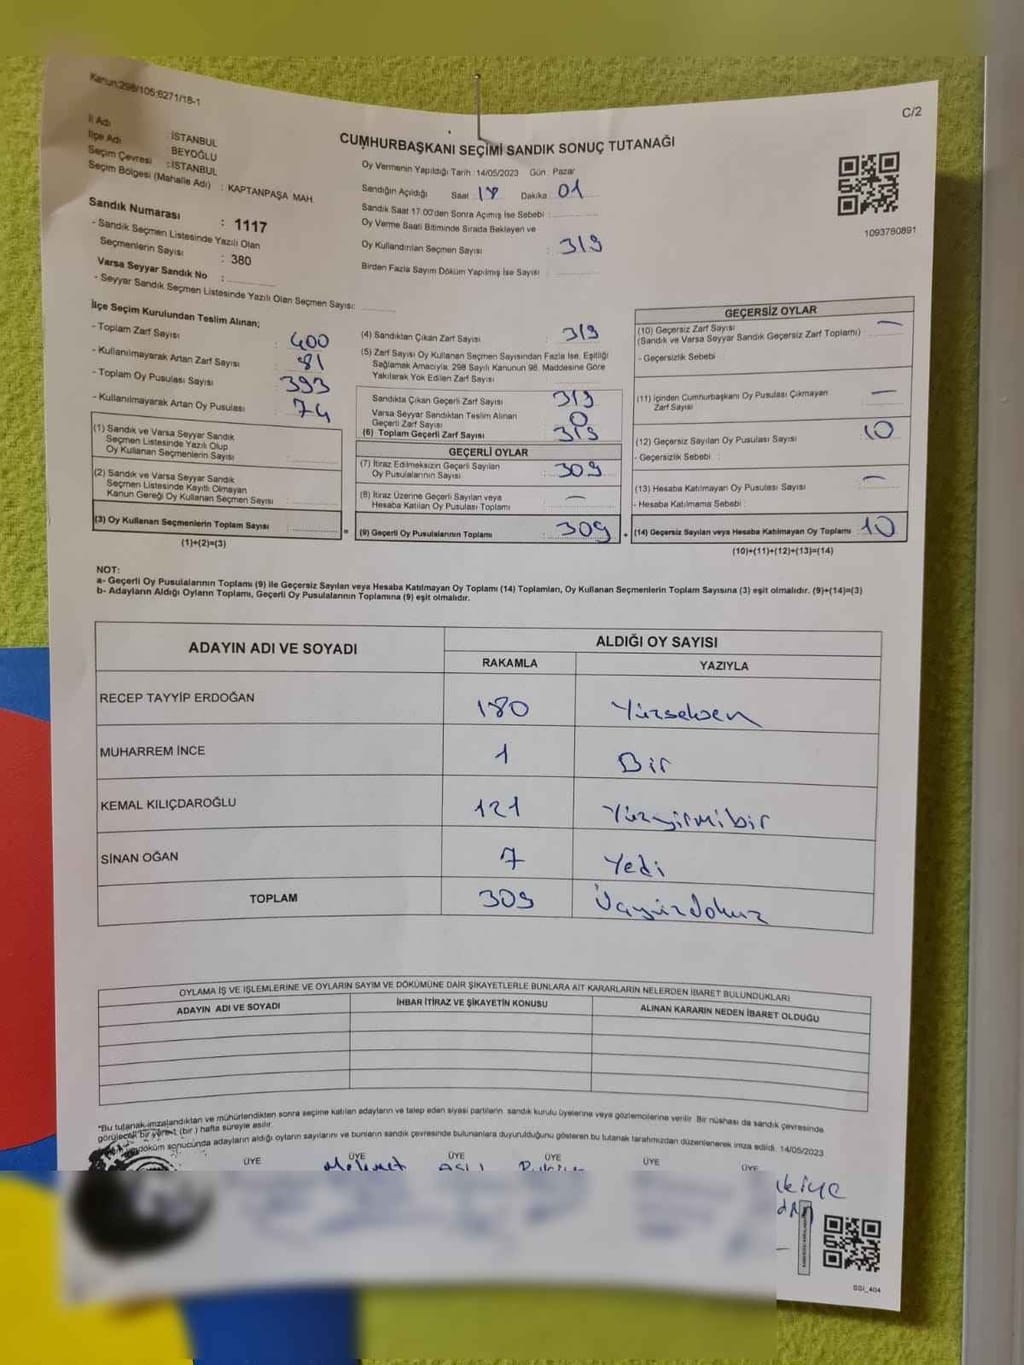 Kanun:298/105;6271/18-1
C/2
İl Adı : İSTANBUL
İlçe Adı : BEYOĞLU
Seçim Çevresi : İSTANBUL
Seçim Bölgesi (Mahalle Adı) : KAPTANPAŞA MAH.
CUMHURBAŞKANI SEÇİMİ SANDIK SONUÇ TUTANAĞI
Oy Vermenin Yapıldığı Tarih : 14/05/2023 Gün : Pazar
Sandığın Açıldığı Saat 17 Dakika 01
Sandık Saat 17.00'den Sonra Açılmış İse Sebebi :
Oy Verme Saati Bitiminde Sırada Bekleyen ve
Oy Kullandırılan Seçmen Sayısı : 319
Birden Fazla Sayım Döküm Yapılmış İse Sayısı :
1093780891
Sandık Numarası : 1117
- Sandık Seçmen Listesinde Yazılı Olan
Seçmenlerin Sayısı : 380
Varsa Seyyar Sandık No :
- Seyyar Sandık Seçmen Listesinde Yazılı Olan Seçmen Sayısı:
İlçe Seçim Kurulundan Teslim Alınan;
- Toplam Zarf Sayısı : 400
- Kullanılmayarak Artan Zarf Sayısı : 81
- Toplam Oy Pusulası Sayısı : 393
- Kullanılmayarak Artan Oy Pusulası : 74
(1) Sandık ve Varsa Seyyar Sandık
Seçmen Listesinde Yazılı Olup
Oy Kullanan Seçmenlerin Sayısı :
(2) Sandık ve Varsa Seyyar Sandık
Seçmen Listesinde Kayıtlı Olmayan
Kanun Gereği Oy Kullanan Seçmen Sayısı :
(3) Oy Kullanan Seçmenlerin Toplam Sayısı :
(1)+(2)=(3)
(4) Sandıktan Çıkan Zarf Sayısı : 319
(5) Zarf Sayısı Oy Kullanan Seçmen Sayısından Fazla İse, Eşitliği
Sağlamak Amacıyla; 298 Sayılı Kanunun 98. Maddesine Göre
Yakılarak Yok Edilen Zarf Sayısı :
Sandıkta Çıkan Geçerli Zarf Sayısı : 319
Varsa Seyyar Sandıktan Teslim Alınan
Geçerli Zarf Sayısı : 0
(6) Toplam Geçerli Zarf Sayısı : 319
GEÇERLİ OYLAR
(7) İtiraz Edilmeksizin Geçerli Sayılan
Oy Pusulalarının Sayısı : 309
(8) İtiraz Üzerine Geçerli Sayılan veya
Hesaba Katılan Oy Pusulası Toplamı : —
(9) Geçerli Oy Pusulalarının Toplamı : 309
GEÇERSİZ OYLAR
(10) Geçersiz Zarf Sayısı : —
(Sandık ve Varsa Seyyar Sandık Geçersiz Zarf Toplamı)
- Geçersizlik Sebebi
(11) İçinden Cumhurbaşkanı Oy Pusulası Çıkmayan
Zarf Sayısı : —
(12) Geçersiz Sayılan Oy Pusulası Sayısı : 10
- Geçersizlik Sebebi :
(13) Hesaba Katılmayan Oy Pusulası Sayısı : —
- Hesaba Katılmama Sebebi :
(14) Geçersiz Sayılan veya Hesaba Katılmayan Oy Toplamı : 10
(10)+(11)+(12)+(13)=(14)
NOT:
a- Geçerli Oy Pusulalarının Toplamı (9) ile Geçersiz Sayılan veya Hesaba Katılmayan Oy Toplamı (14) Toplamları, Oy Kullanan Seçmenlerin Toplam Sayısına (3) eşit olmalıdır. (9)+(14)=(3)
b- Adayların Aldığı Oyların Toplamı, Geçerli Oy Pusulalarının Toplamına (9) eşit olmalıdır.
ADAYIN ADI VE SOYADI
ALDIĞI OY SAYISI
RAKAMLA YAZIYLA
RECEP TAYYİP ERDOĞAN 180 Yüzseksen
MUHARREM İNCE 1 Bir
KEMAL KILIÇDAROĞLU 121 Yüzyirmibir
SİNAN OĞAN 7 Yedi
TOPLAM 309 Üçyüzdokuz
OYLAMA İŞ VE İŞLEMLERİNE VE OYLARIN SAYIM VE DÖKÜMÜNE DAİR ŞİKAYETLERLE BUNLARA AİT KARARLARIN NELERDEN İBARET BULUNDUKLARI
ADAYIN ADI VE SOYADI İHBAR İTİRAZ VE ŞİKAYETİN KONUSU ALINAN KARARIN NEDEN İBARET OLDUĞU
*Bu tutanak imzalandıktan ve mühürlendikten sonra seçime katılan adayların ve talep eden siyasi partilerin, sandık kurulu üyelerine veya gözlemcilerine verilir. Bir nüshası da sandık çevresinde
görülecek bir yere 1 (bir) hafta süreyle asılır.
döküm sonucunda adayların aldığı oyların sayılarını ve bunların sandık çevresinde bulunanlara duyurulduğunu gösteren bu tutanak tarafımızdan düzenlenerek imza edildi. 14/05/2023
ÜYE ÜYE ÜYE ÜYE ÜYE ÜYE
Mehmet
SSI_404